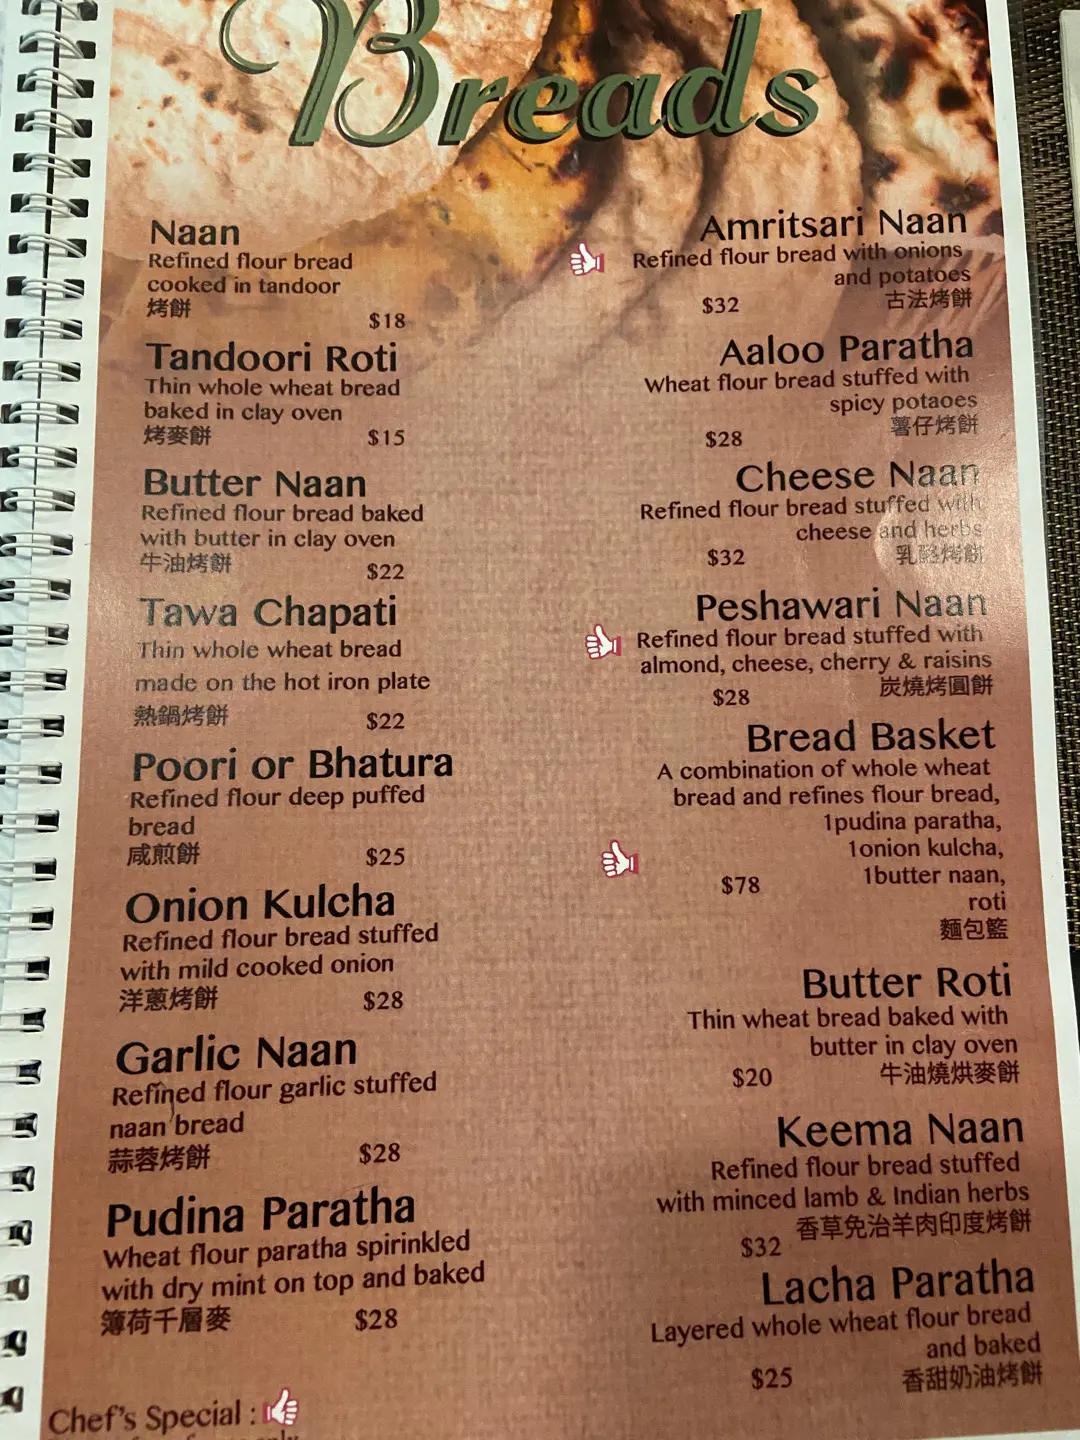 Breads
Naan
Refined flour bread
cooked in tandoor
烤餅
$18
Tandoori Roti
Thin whole wheat bread
baked in clay oven
烤麥餅
$15
Butter Naan
Refined flour bread baked
with butter in clay oven
牛油烤餅
$22
Tawa Chapati
Thin whole wheat bread
made on the hot iron plate
熱鍋烤餅
$22
Poori or Bhatura
Refined flour deep puffed
bread
咸煎餅
$25
Onion Kulcha
Refined flour bread stuffed
with mild cooked onion
洋蔥烤餅
$28
Garlic Naan
Refined flour garlic stuffed
naan bread
蒜蓉烤餅
$28
Pudina Paratha
Wheat flour paratha spirinkled
with dry mint on top and baked
簿荷千層麥
$28
Chef's Special :
Amritsari Naan
Refined flour bread with onions
and potatoes
古法烤餅
$32
Aaloo Paratha
Wheat flour bread stuffed with
spicy potaoes
薯仔烤餅
$28
Cheese Naan
Refined flour bread stuffed with
cheese and herbs
乳酪烤餅
$32
Peshawari Naan
Refined flour bread stuffed with
almond, cheese, cherry & raisins
炭燒烤圓餅
$28
Bread Basket
A combination of whole wheat
bread and refines flour bread,
1pudina paratha,
1onion kulcha,
1butter naan,
roti
麵包籃
$78
Butter Roti
Thin wheat bread baked with
butter in clay oven
牛油燒烘麥餅
$20
Keema Naan
Refined flour bread stuffed
with minced lamb & Indian herbs
香草免治羊肉印度烤餅
$32
Lacha Paratha
Layered whole wheat flour bread
and baked
香甜奶油烤餅
$25